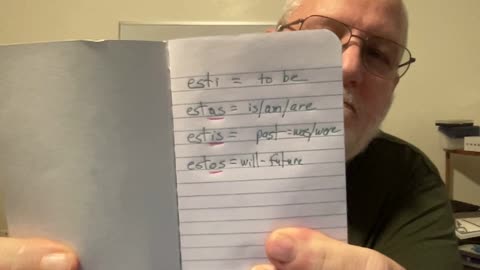 esti = to be
estas = is/am/are
estis = past = was/were
estos = will - future